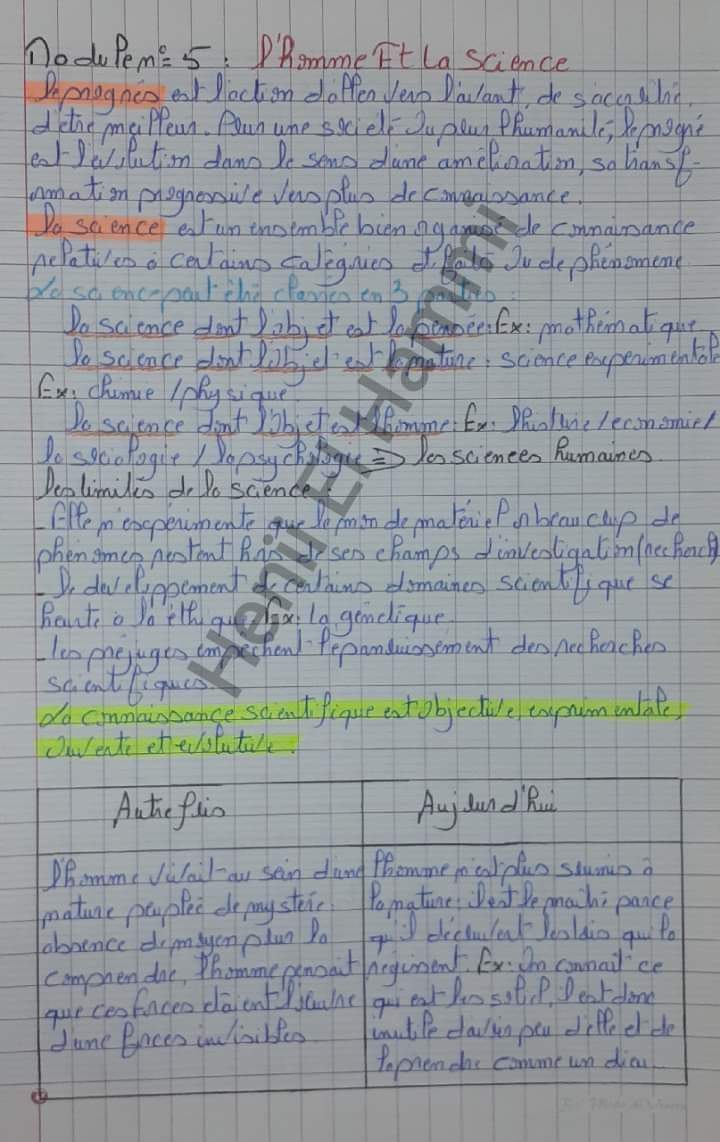 Module n° 5 : l'homme Et La science
Le progrés est l'action d'aller vers l'avant, de s'accroître,
d'être meilleur. Pour une société ou pour l'humanité, le progré
est l'évolution dans le sens d'une amélioration, sa transf-
ormation progressive vers plus de connaissance.
La science est un ensemble bien organisé de connaissance
relatives à certains catégories de faits ou de phénomène
La science peut être classées en 3 parties :
La science dont l'objet est la pensée : Ex : mathématique
La science dont l'objet est la nature : science experimentale
Ex : chimie / physique
La science dont l'objet est l'homme : Ex : l'histoire / economie /
la sociologie / la psychologie => les sciences humaines.
Les limites de la science :
- Elle n'expérimente que le monde matériel n beaucoup de
phénomes restent hors de ses champs d'investigation (recherch)
- Le developpement de certains domaines scientifique se
heurte à la éthique Ex : la génétique
- les préjuges empêchent l'épanouissement des recherches
scientifiques.
La connaissance scientifique est objective, exprimentale,
ouverte et evolutive.
Autrefois
Aujourd'hui
l'homme vivait au sein d'une
nature peuplée de mystère.
absence de moyen pour la
comprendre, l'homme pensait
que ces forces étaient l'œuvre
d'une forces invisibles.
l'homme n'est plus soumis à
la nature : il est le maître parce
qu'il découvert les lois qui la
regissent. Ex : On connait ce
qui est le soleil, il est donc
inutile d'avoir peur d'elle et de
le prendre comme un dieu.
Henii El Hammi